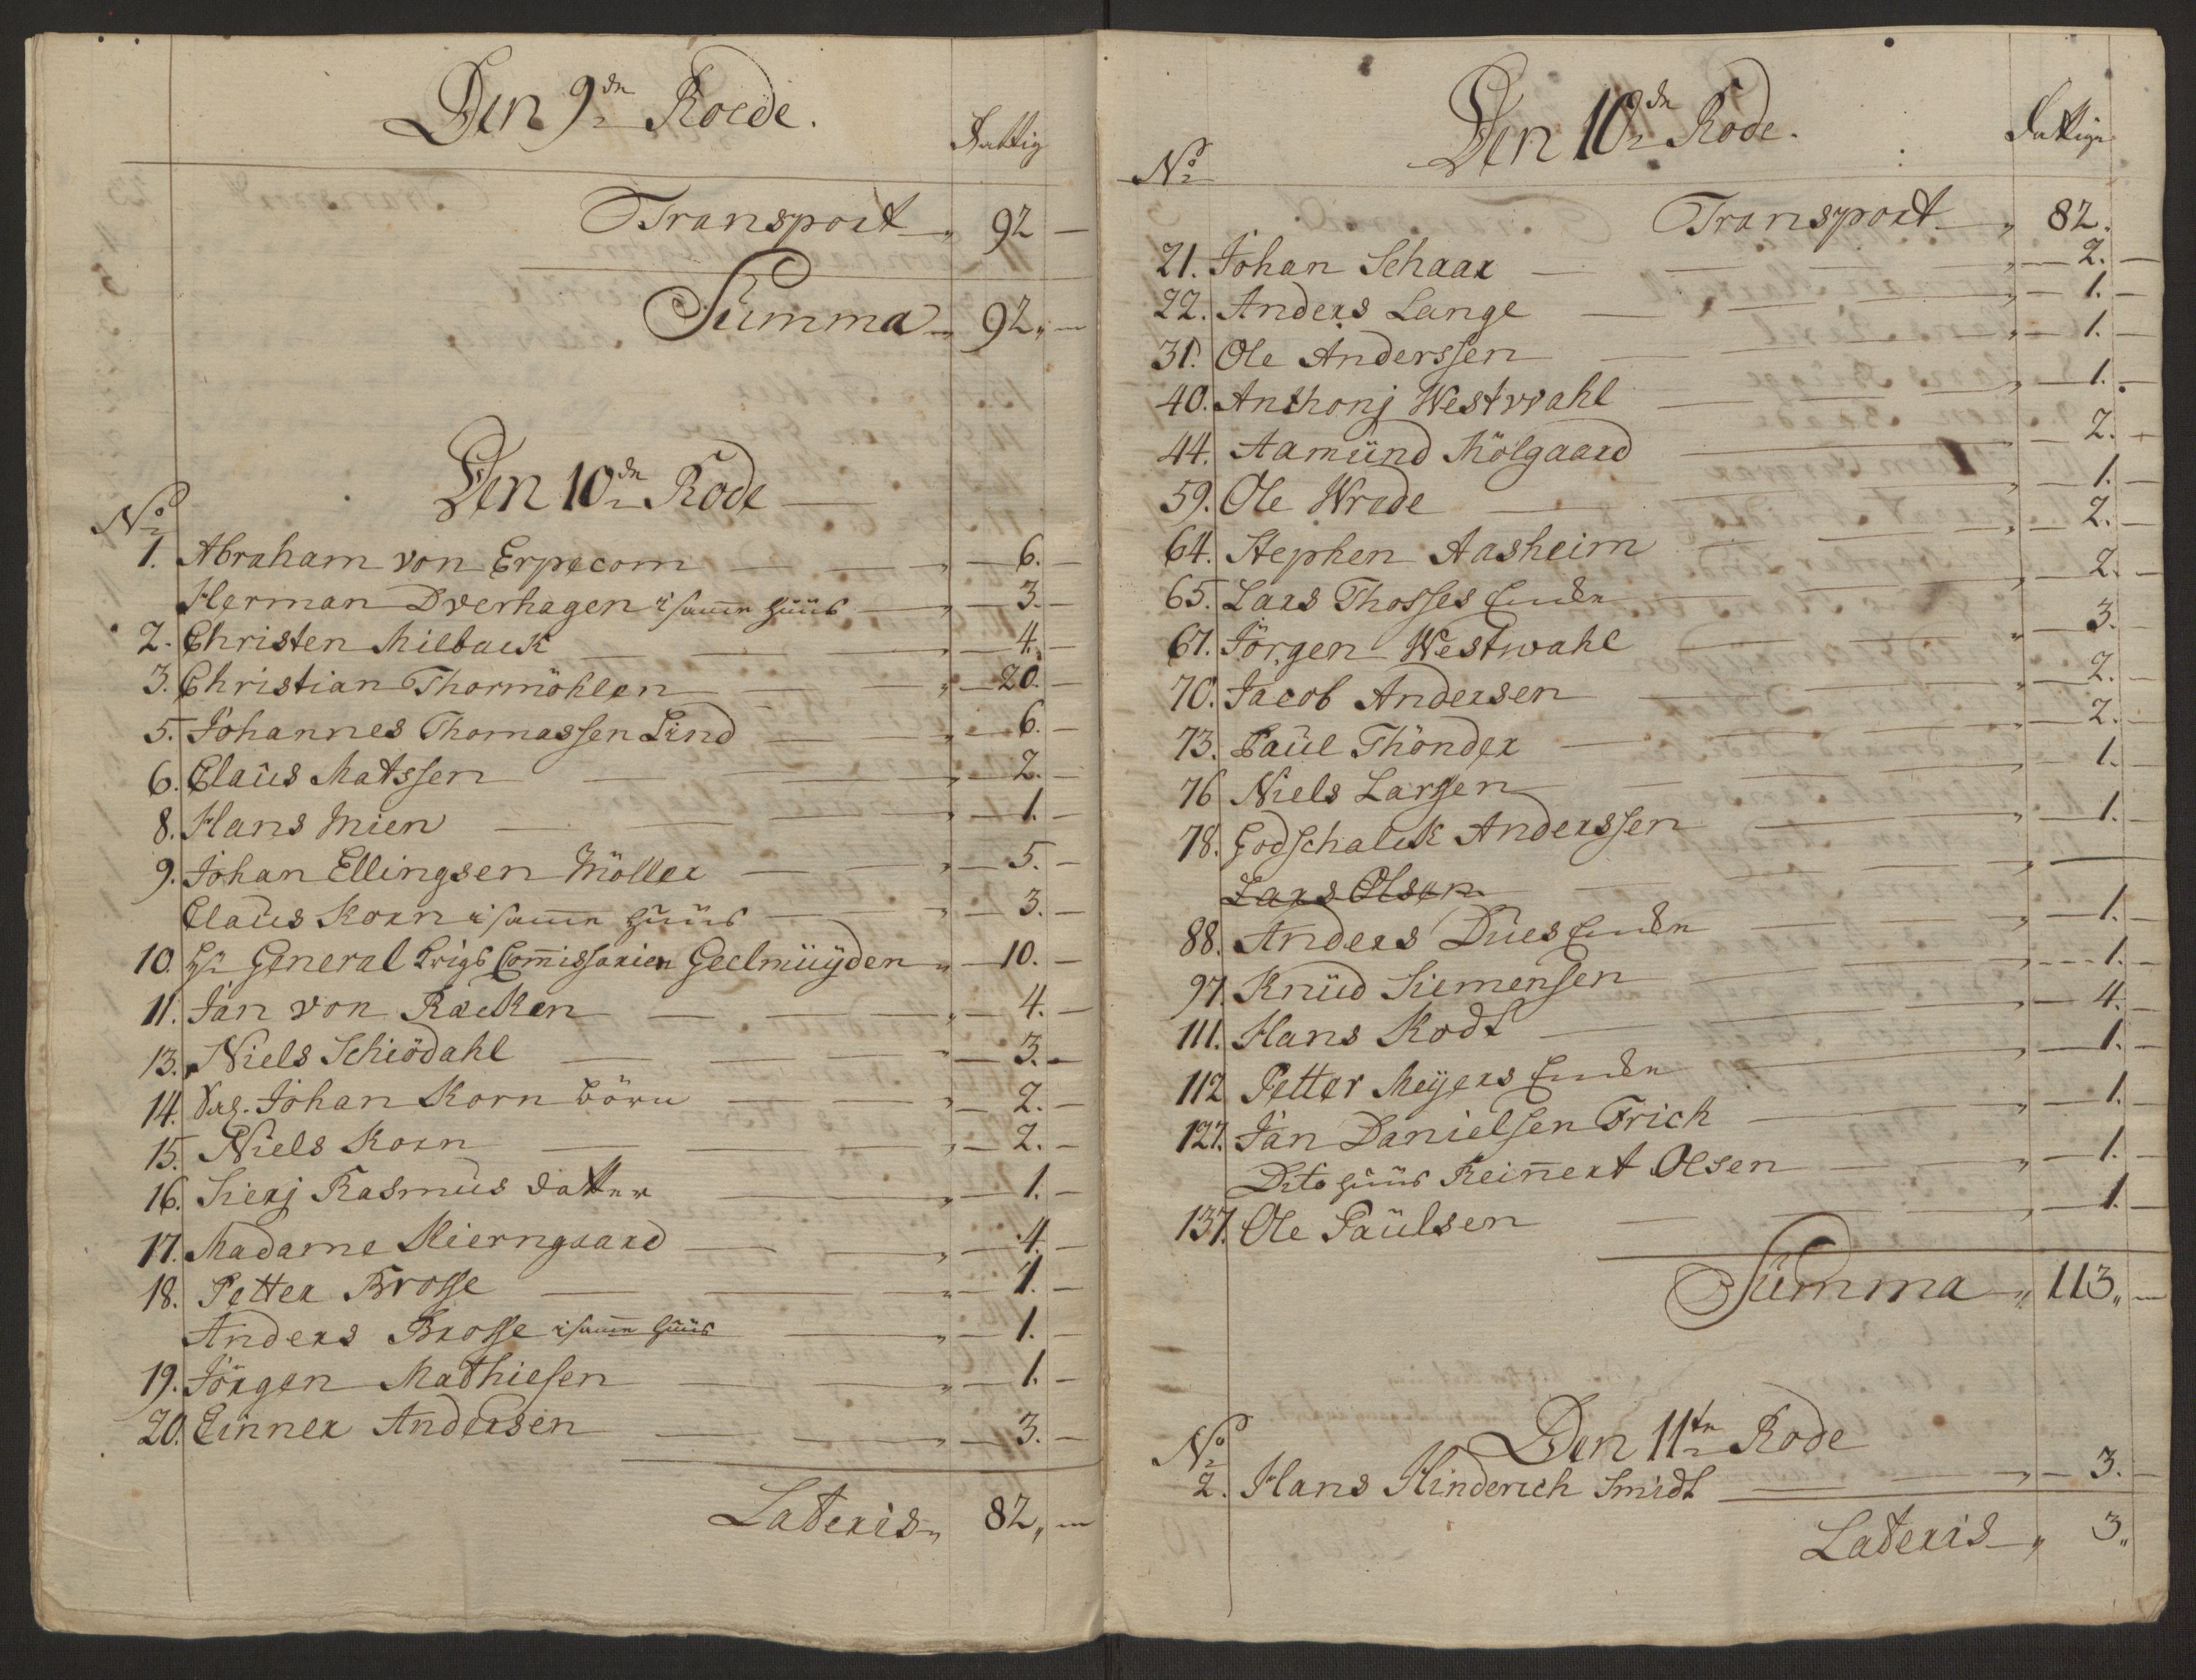 Den 9de Roede.
Fattig
Transport 92
Summa 92
Den 10de Rode
No
1. Abraham von Erpecom 6.
Herman Dverhagen i samme Huus 3.
2. Christen Milback 4.
3. Christian Thormöhlen 20.
5. Johannes Thomassen Lind 6.
6. Claus Matssen 2.
8. Hans Mien 1.
9. Johan Ellingsen Möller 5.
Claus Korn i samme Huus 3.
10. Hr General Krigs Commissarien Geelmuyden 10.
11. Jan von Racken 4.
13. Niels Schiödahl 3.
14. Sal. Johan Korn börn 2.
15. Niels Korn 2.
16. Sierj Rasmus datter 1.
17. Madame Kierngaard 4.
18. Petter Brosse 1.
Anders Brosse i samme Huus 1.
19. Jörgen Mathiesen 1.
20. Einner Andersen 3.
Lateris 82
Den 10de Rode.
No
Fattige
Transport 82.
21. Johan Schaar 2.
22. Anders Lange 1.
31. Ole Anderssen 1.
40. Anthonj Westwahl 1.
44. Aamünd Mölgaard 2.
59. Ole Wrede 1.
64. Stephen Aasheim 2.
65. Lars Thosses Encke 2.
67. Jörgen Westwahl 3.
70. Jacob Andersen 2.
73. Paül Thönder 2.
76 Niels Larssen 1.
78. Godschalck Anderssen 1.
Lars Olsen
88. Anders Dües Encke 1.
97. Knüd Siemensen 1.
111. Hans Kodt 4.
112 Petter Meyers Encke 1.
127. Jan Danielsen Frich 1.
Dito Huus Reinnert Olsen 1.
137. Ole Paülsen 1.
Summa 113
Den 11te Rode
No
2. Hans Hinderich Smidt 3.
Lateris 3